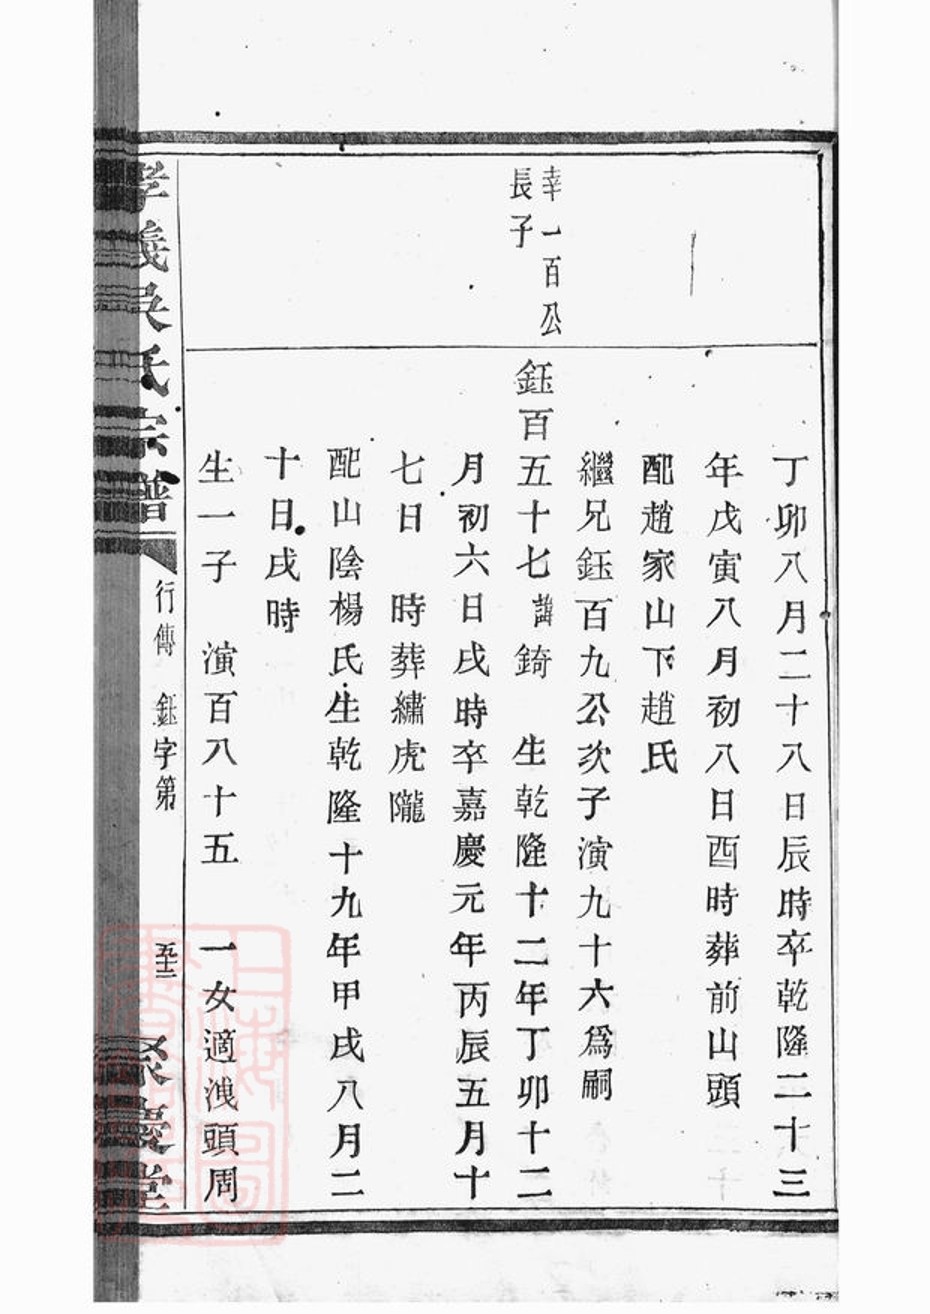 丁卯八月二十八日辰時卒乾隆二十三
年戊寅八月初八日酉時葬前山頭
配趙家山下趙氏
繼兄鈺百九公次子演九十六爲嗣
幸一百公
長子
鈺百五十七諱錡　生乾隆十二年丁卯十二
月初六日戌時卒嘉慶元年丙辰五月十
七日　時葬繡虎隴
配山陰楊氏生乾隆十九年甲戌八月二
十日戌時
生一子　演百八十五　一女適洩頭周
孝義吳氏宗譜
行傳　鈺字第
五十二
聚慶堂